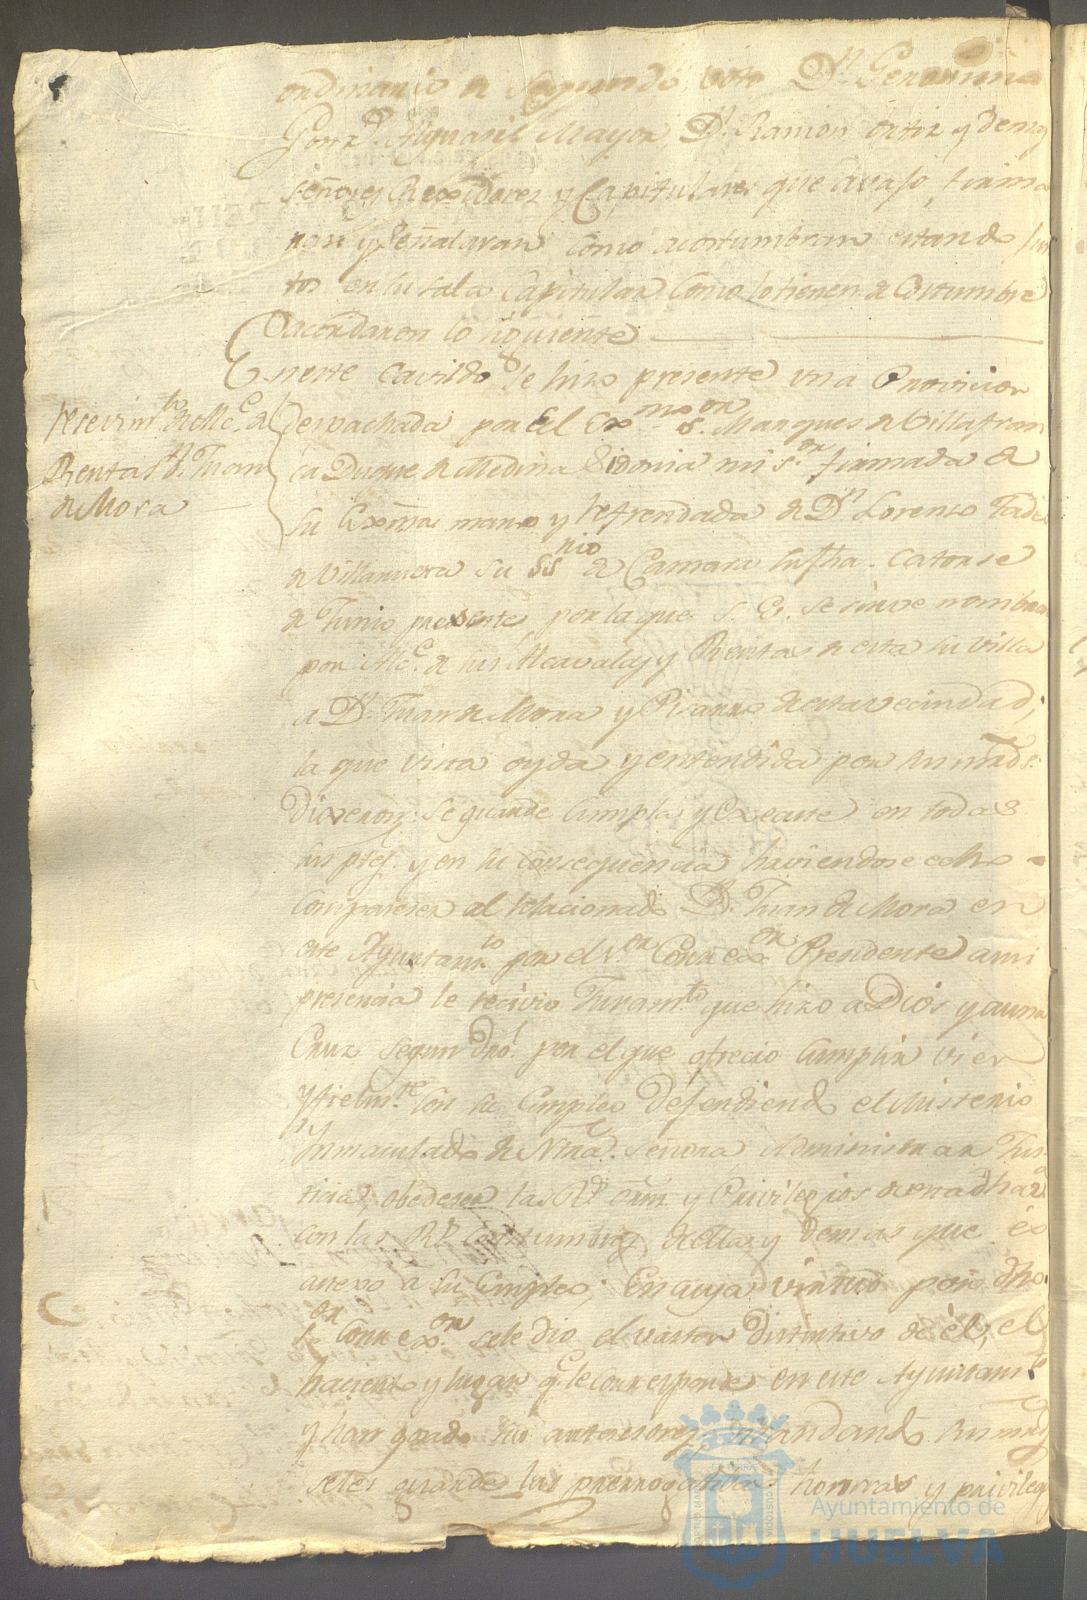 ordinario de segundo voto Dn. Geronimo
Gonz.z Alguasil Mayor, Dn. Ramon Ortiz y demas
señores Rexidores y Capitulares que avajo, firma
ran y señalaran como acostumbran estando jun
tos en su sala Capitular como lo tienen de Costumbre
acordaron lo siguiente
Resevim.to de Alc.e de
Rentas Dn. Juan
de Mora
En este Cavildo se hizo presente una Provision
despachada por El Exmo. S.or Marques de Villafran
ca Duque de Medina Sidonia mi s.or firmada de
su Exma. mano y refrendada de Dn. Lorenzo Tadeo
de Villanueva su SS.rio de Camara su fha. Catorse
de Junio presente por la que S. E. se sirve nombrar
por Alc.e de sus Alcavalas y Rentas de esta su Villa
a Dn. Juan de Mora y Pizarro de esta vecindad;
la que vista oyda y entendida por sus mds.
Dixeron: se guarde cumpla y execute en todas
sus ptes. y en su consequencia haviendose echo
comparecer al relacionado Dn. Juan de Mora en
este Ayuntam.to por el S.or Correx.or Presidente a mi
presencia le recivio Juram.to que hizo a Dios y a una
Cruz segun dro. por el que ofrecio cumplir vien
y fielm.te con su Empleo Defendiendo el Misterio
Inmaculado de Ntra. Señora Administrar Jus
ticia, obedeser las Rs.
con las Rs. costumbres de ella y demas que es
anexo a su Empleo; En cuya virtud por dho.
S.or Correx.or se le dio el vaston distintivo de èl, el
haciento y lugar q.e le corresponde en este Ayuntam.to
y han gosado sus antesesores, mandando sus mds.
se les guarde las prerrogativas honrras y privileg
Ayuntamiento de
HUELVA